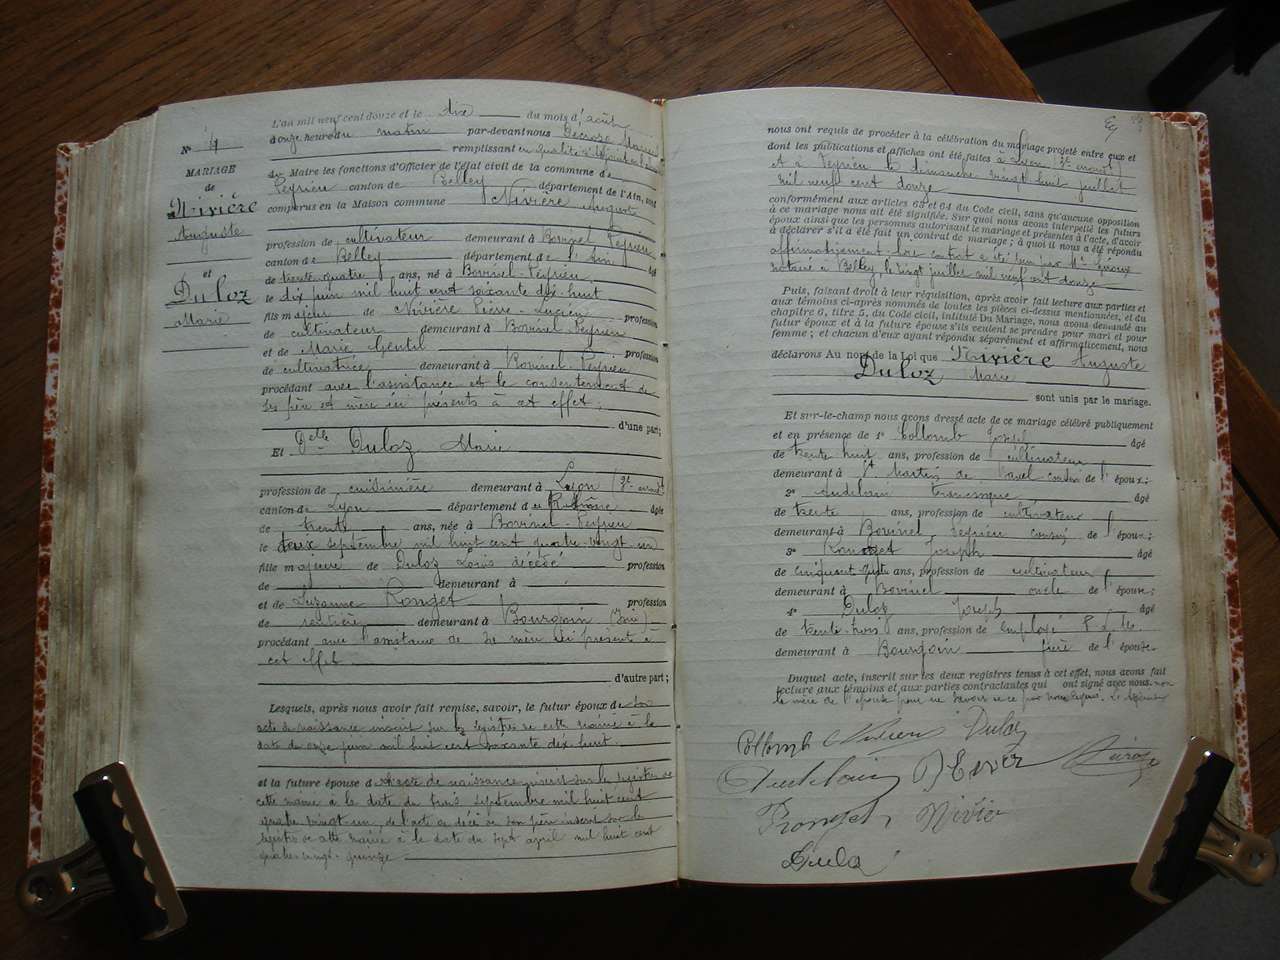 N° 4
MARIAGE
de
Nivière
Auguste
et
Duloz
Marie
L'an mil neuf cent douze et le dix du mois d'août
à onze heures du matin par-devant nous Decroso
remplissant en qualité d'
du Maire les fonctions d'Officier de l'état civil de la commune de
Peyrieu canton de Belley département de l'Ain, sont
comparus en la Maison commune Nivière Auguste
profession de cultivateur demeurant à Bovinel-Peyrieu
canton de Belley département de l'Ain âgé
de trente quatre ans, né à Bovinel-Peyrieu
le dix juin mil huit cent soixante dix-huit
fils majeur de Nivière Pierre-Lucien profession
de cultivateur demeurant à Bovinel-Peyrieu
et de Marie Gentil profession
de cultivatrice demeurant à Bovinel-Peyrieu
procédant avec l'assistance et le consentement de
ses père et mère ici présents à cet effet.
d'une part;
Et Delle Duloz Marie
profession de cuisinière demeurant à Lyon (3e arrondt)
canton de Lyon département du Rhône âgée
de trente ans, née à Bovinel-Peyrieu
le deux septembre mil huit cent quatre-vingt un
fille majeure de Duloz Louis décédé profession
de demeurant à
et de Suzanne Rougel profession
de rentière demeurant à Bourgoin (Isère)
procédant avec l'assistance de sa mère ici présent à
cet effet
d'autre part;
Lesquels, après nous avoir fait remise, savoir, le futur époux de son
acte de naissance inscrit sur les registres de cette mairie à la
date du onze juin mil huit cent soixante dix-huit.
et la future épouse de son acte de naissance inscrit sur les registres de
cette mairie à la date du trois septembre mil huit cent
quatre vingt un, de l'acte de décès de son père inscrit sur les
registres de cette mairie à la date du sept avril mil huit cent
quatre vingt-quinze
nous ont requis de procéder à la célébration du mariage projeté entre eux et
dont les publications et affiches ont été faites à Lyon (3e arrondt)
et à Peyrieu le dimanche vingt huit juillet
mil neuf cent douze
conformément aux articles 63 et 64 du Code civil, sans qu'aucune opposition
à ce mariage nous ait été signifiée. Sur quoi nous avons interpellé les futurs
époux ainsi que les personnes autorisant le mariage et présentes à l'acte, d'avoir
à déclarer s'il a été fait un contrat de mariage; à quoi il nous a été répondu
affirmativement dont contrat a été reçu par Me
notaire à Belley le vingt juillet mil neuf cent douze
Puis, faisant droit à leur réquisition, après avoir fait lecture aux parties et
aux témoins ci-après nommés de toutes les pièces ci-dessus mentionnées, et du
chapitre 6, titre 5, du Code civil, intitulé Du Mariage, nous avons demandé au
futur époux et à la future épouse s'ils veulent se prendre pour mari et pour
femme; et chacun d'eux ayant répondu séparément et affirmativement, nous
déclarons Au nom de la Loi que Nivière Auguste
Duloz Marie
sont unis par le mariage.
Et sur-le-champ nous avons dressé acte de ce mariage célébré publiquement
et en présence de 1° Collomb Joseph âgé
de trente huit ans, profession de cultivateur
demeurant à St Martin de Bavel cousin de l'époux;
2° Audelain Francisque âgé
de trente ans, profession de cultivateur
demeurant à Bovinel Peyrieu cousin de l'époux;
3° Rougel Joseph âgé
de cinquante ans, profession de cultivateur
demeurant à Bovinel oncle de l'épouse;
4° Duloz Joseph âgé
de trente-trois ans, profession de employé P. L. M.
demeurant à Bourgoin frère de l'épouse.
Duquel acte, inscrit sur les deux registres tenus à cet effet, nous avons fait
lecture aux témoins et aux parties contractantes qui ont signé avec nous, non
la mère de l'épouse pour ne savoir
Collomb Nivière Duloz
Audelain
Rougel Nivière
Dulo